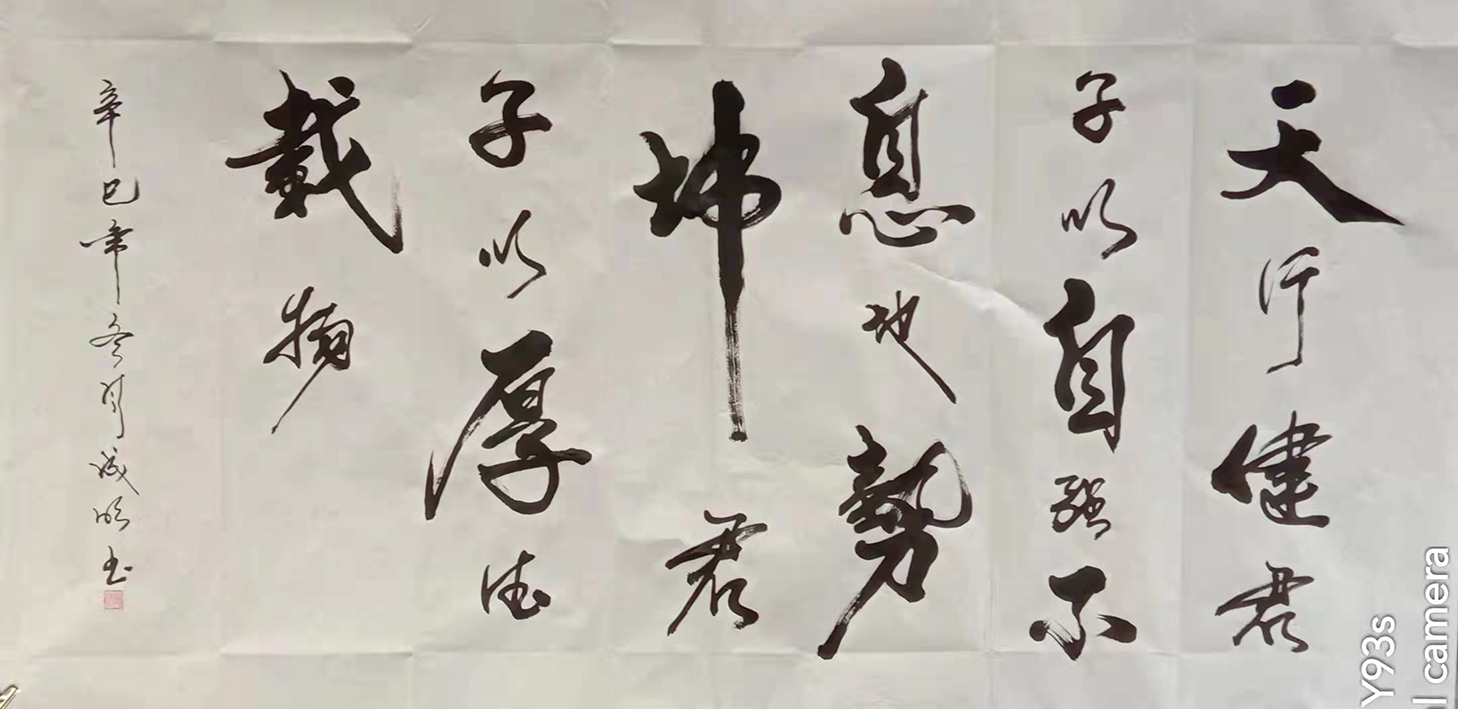 天行健君
子以自强不
息地勢
坤君
子以厚德
載物
辛巳年冬月成明书
Y93s
camera